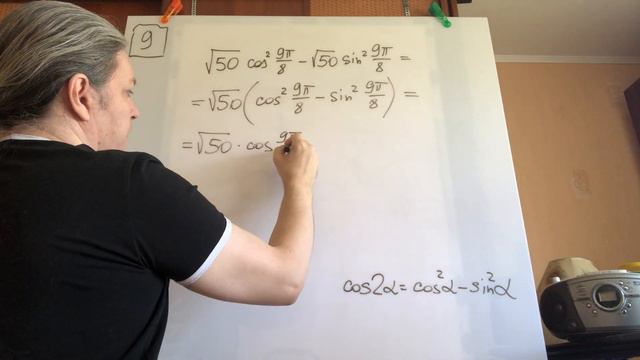 9
√50 cos² 9π/8 − √50 sin² 9π/8 =
= √50 (cos² 9π/8 − sin² 9π/8) =
= √50 · cos 9π
cos2α = cos²α − sin²α